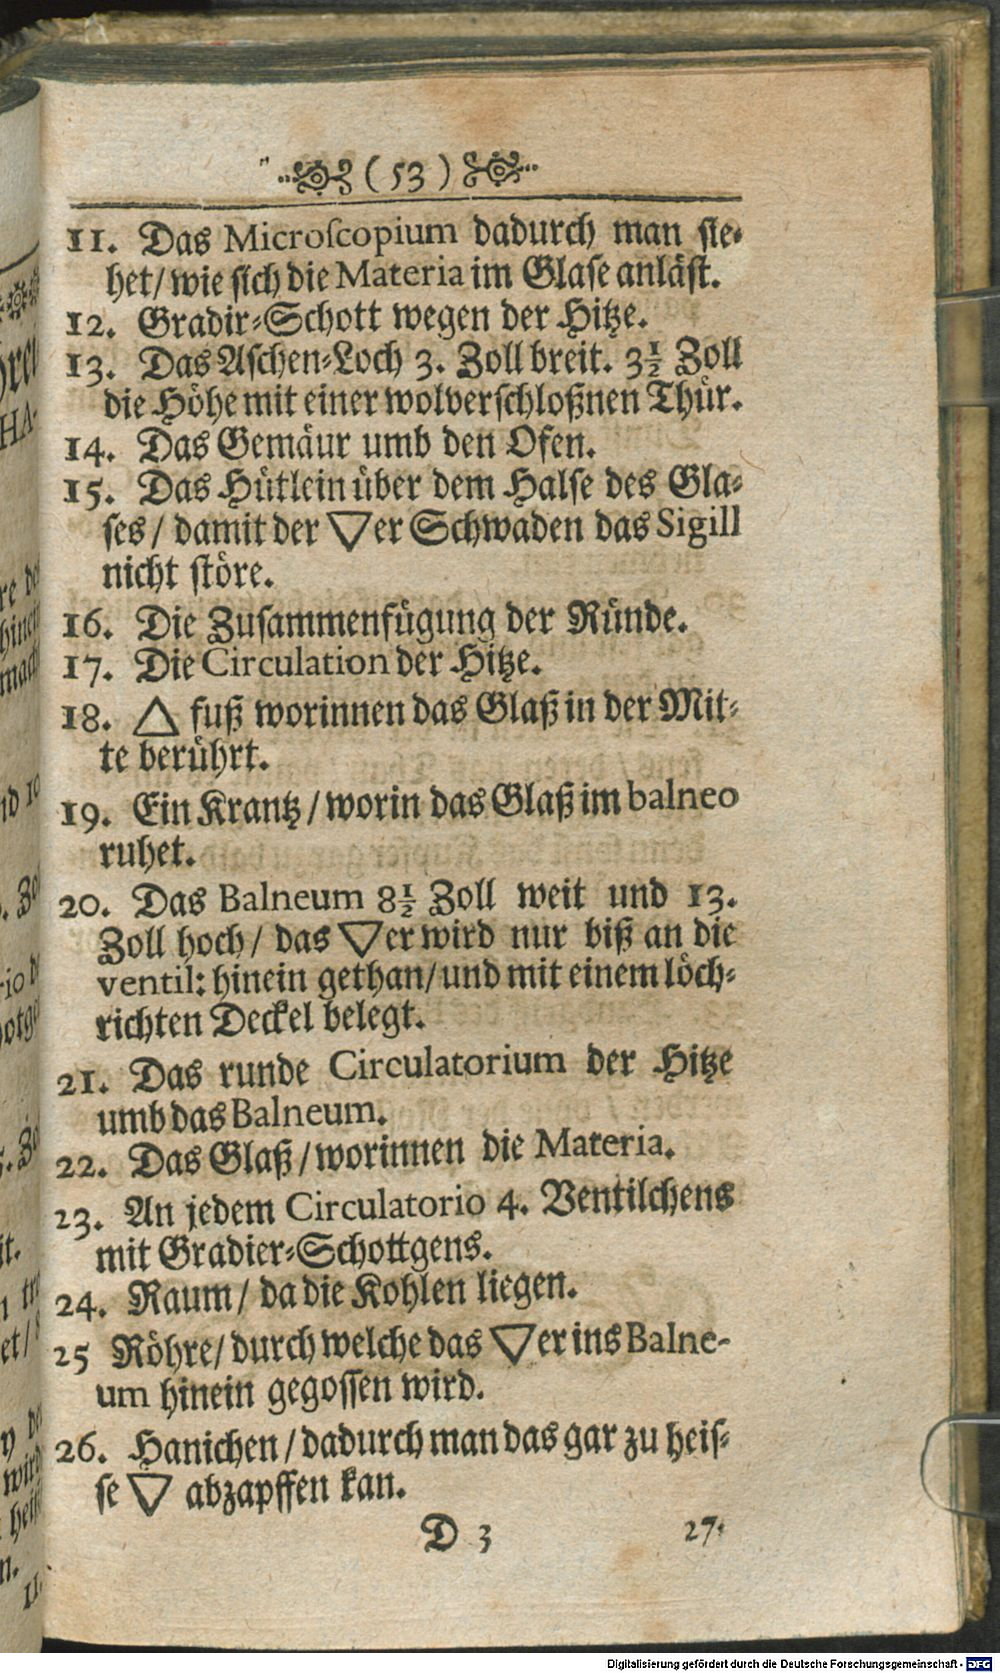 ( 53 )
11. Das Microſcopium dadurch man ſie-
het/ wie ſich die Materia im Glaſe anläſt.
12. Gradir-Schott wegen der Hitze.
13. Das Aſchen-Loch 3. Zoll breit. 3½ Zoll
die Höhe mit einer wolverſchloßnen Thür.
14. Das Gemäur umb den Ofen.
15. Das Hütlein über dem Halſe des Gla-
ſes/ damit der ▽er Schwaden das Sigill
nicht ſtöre.
16. Die Zuſammenfügung der Ründe.
17. Die Circulation der Hitze.
18. △ fuß worinnen das Glaß in der Mit-
te berührt.
19. Ein Krantz/ worin das Glaß im balneo
ruhet.
20. Das Balneum 8½ Zoll weit und 13.
Zoll hoch/ das ▽er wird nur biß an die
ventil: hinein gethan/ und mit einem löch-
richten Deckel belegt.
21. Das runde Circulatorium der Hitze
umb das Balneum.
22. Das Glaß/ worinnen die Materia.
23. An jedem Circulatorio 4. Ventilchens
mit Gradier-Schottgens.
24. Raum/ da die Kohlen liegen.
25 Röhre/ durch welche das ▽er ins Balne-
um hinein gegoſſen wird.
26. Hanichen/ dadurch man das gar zu heiſ-
ſe ▽ abzapffen kan.
D 3 27.
Digitalisierung gefördert durch die Deutsche Forschungsgemeinschaft - DFG